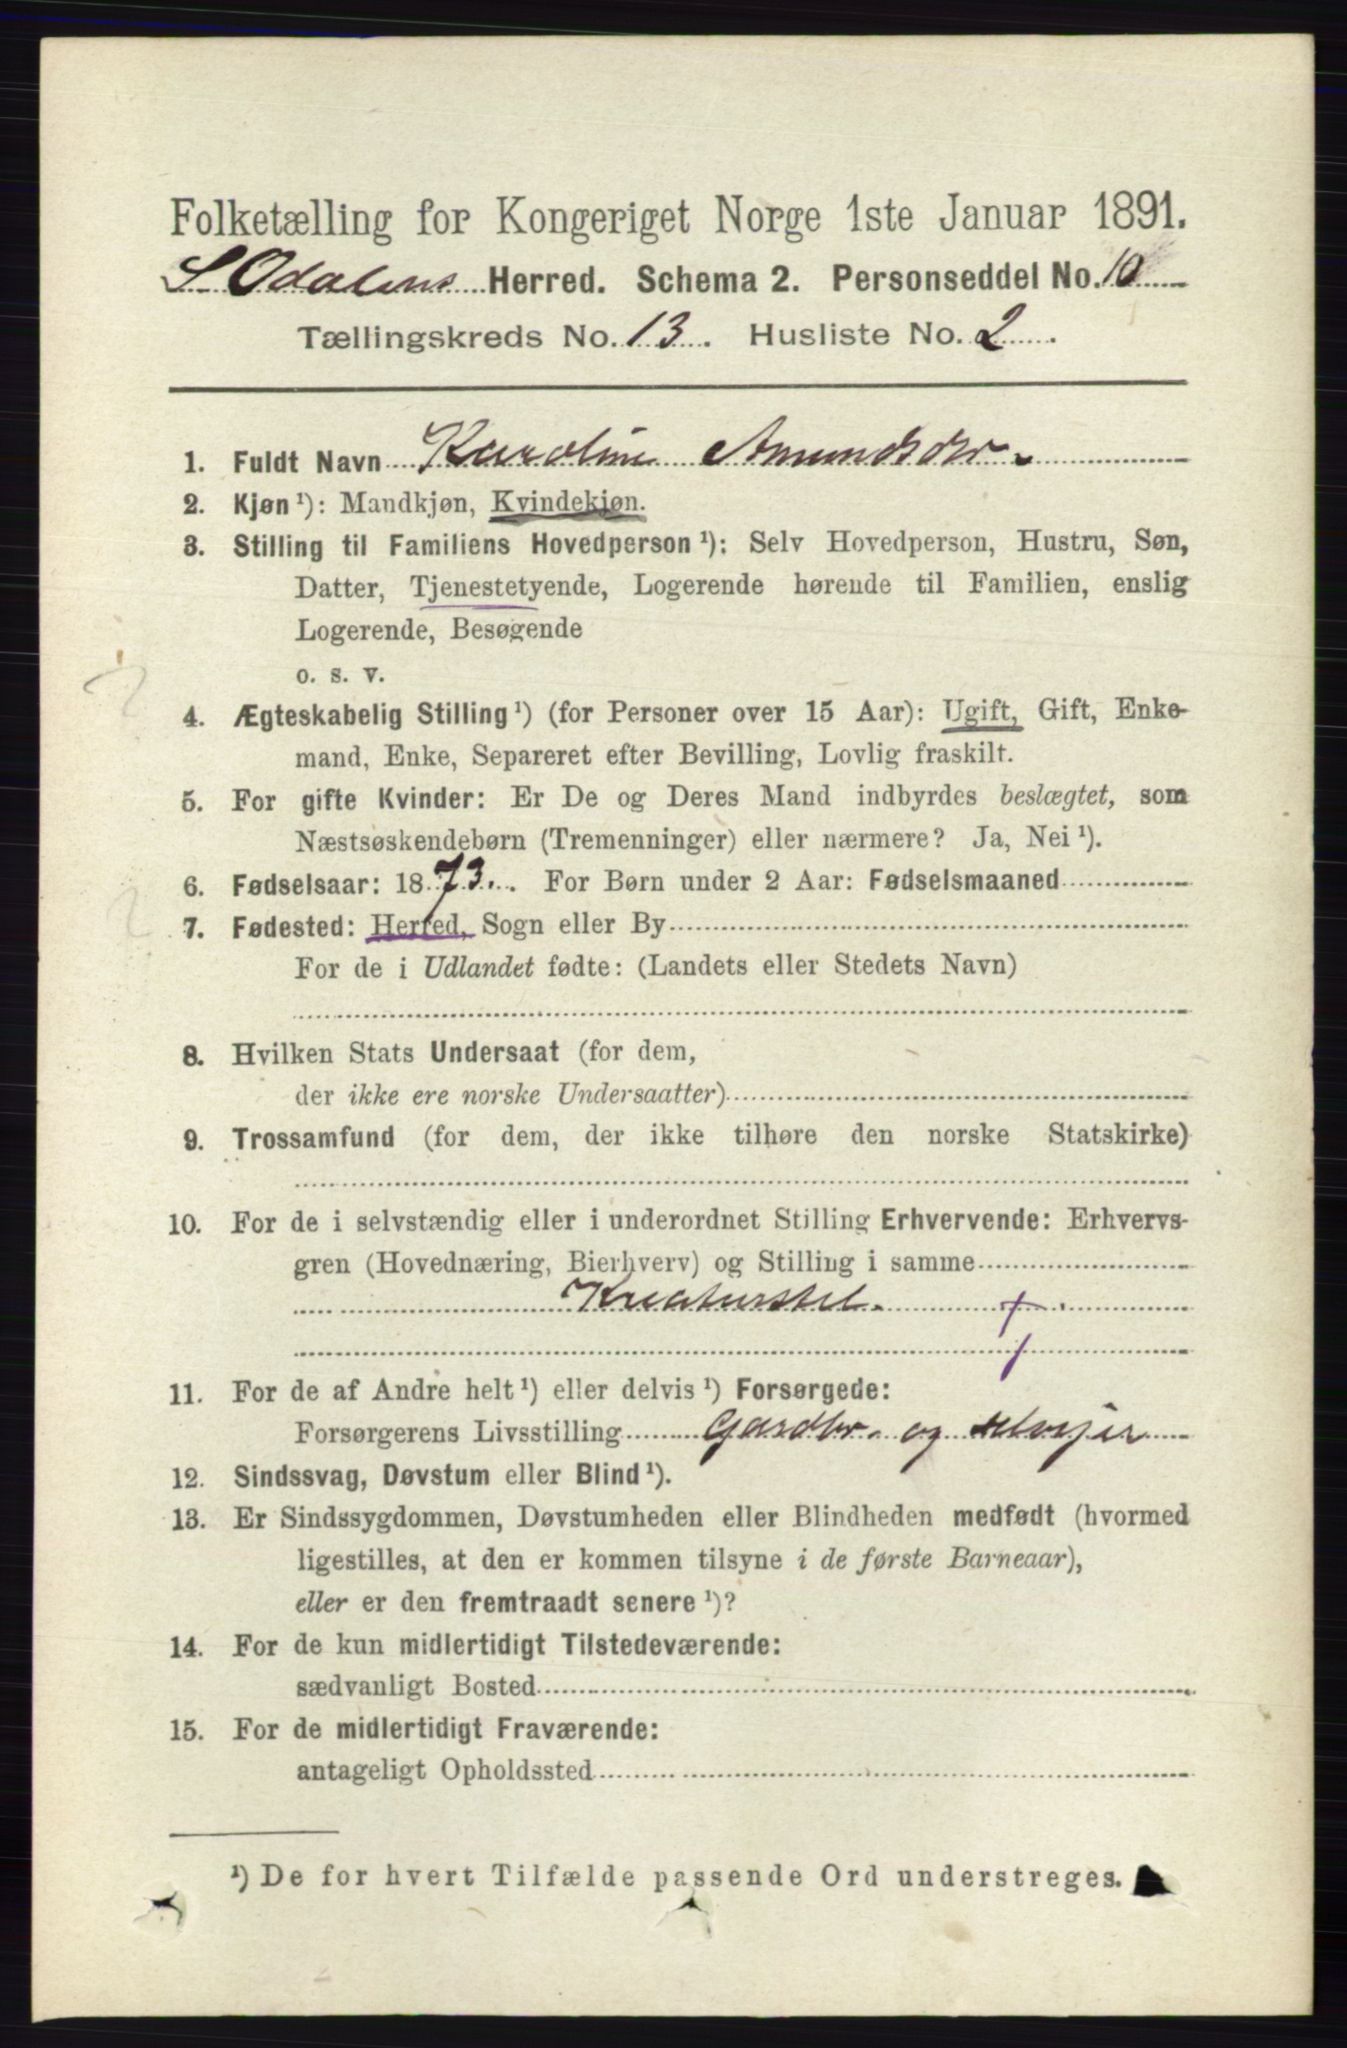 Folketælling for Kongeriget Norge 1ste Januar 1891.
S Odalens Herred. Schema 2. Personseddel No. 10
Tællingskreds No. 13. Husliste No. 2.
1. Fuldt Navn Karoline Amundsdr.
2. Kjøn¹): Mandkjøn, Kvindekjøn.
3. Stilling til Familiens Hovedperson¹): Selv Hovedperson, Hustru, Søn,
Datter, Tjenestetyende, Logerende hørende til Familien, enslig
Logerende, Besøgende
o. s. v.
4. Ægteskabelig Stilling¹) (for Personer over 15 Aar): Ugift, Gift, Enke-
mand, Enke, Separeret efter Bevilling, Lovlig fraskilt.
5. For gifte Kvinder: Er De og Deres Mand indbyrdes beslægtet, som
Næstsøskendebørn (Tremenninger) eller nærmere? Ja, Nei¹).
6. Fødselsaar: 1873. For Børn under 2 Aar: Fødselsmaaned
7. Fødested: Herred, Sogn eller By
For de i Udlandet fødte: (Landets eller Stedets Navn)
8. Hvilken Stats Undersaat (for dem,
der ikke ere norske Undersaatter)
9. Trossamfund (for dem, der ikke tilhøre den norske Statskirke)
10. For de i selvstændig eller i underordnet Stilling Erhvervende: Erhvervs-
gren (Hovednæring, Bierhverv) og Stilling i samme
Kreaturstel.
11. For de af Andre helt¹) eller delvis¹) Forsørgede:
Forsørgerens Livsstilling Gardbr. og selvejer
12. Sindssvag, Døvstum eller Blind¹).
13. Er Sindssygdommen, Døvstumheden eller Blindheden medfødt (hvormed
ligestilles, at den er kommen tilsyne i de første Barneaar),
eller er den fremtraadt senere¹)?
14. For de kun midlertidigt Tilstedeværende:
sædvanligt Bosted
15. For de midlertidigt Fraværende:
antageligt Opholdssted
¹) De for hvert Tilfælde passende Ord understreges.